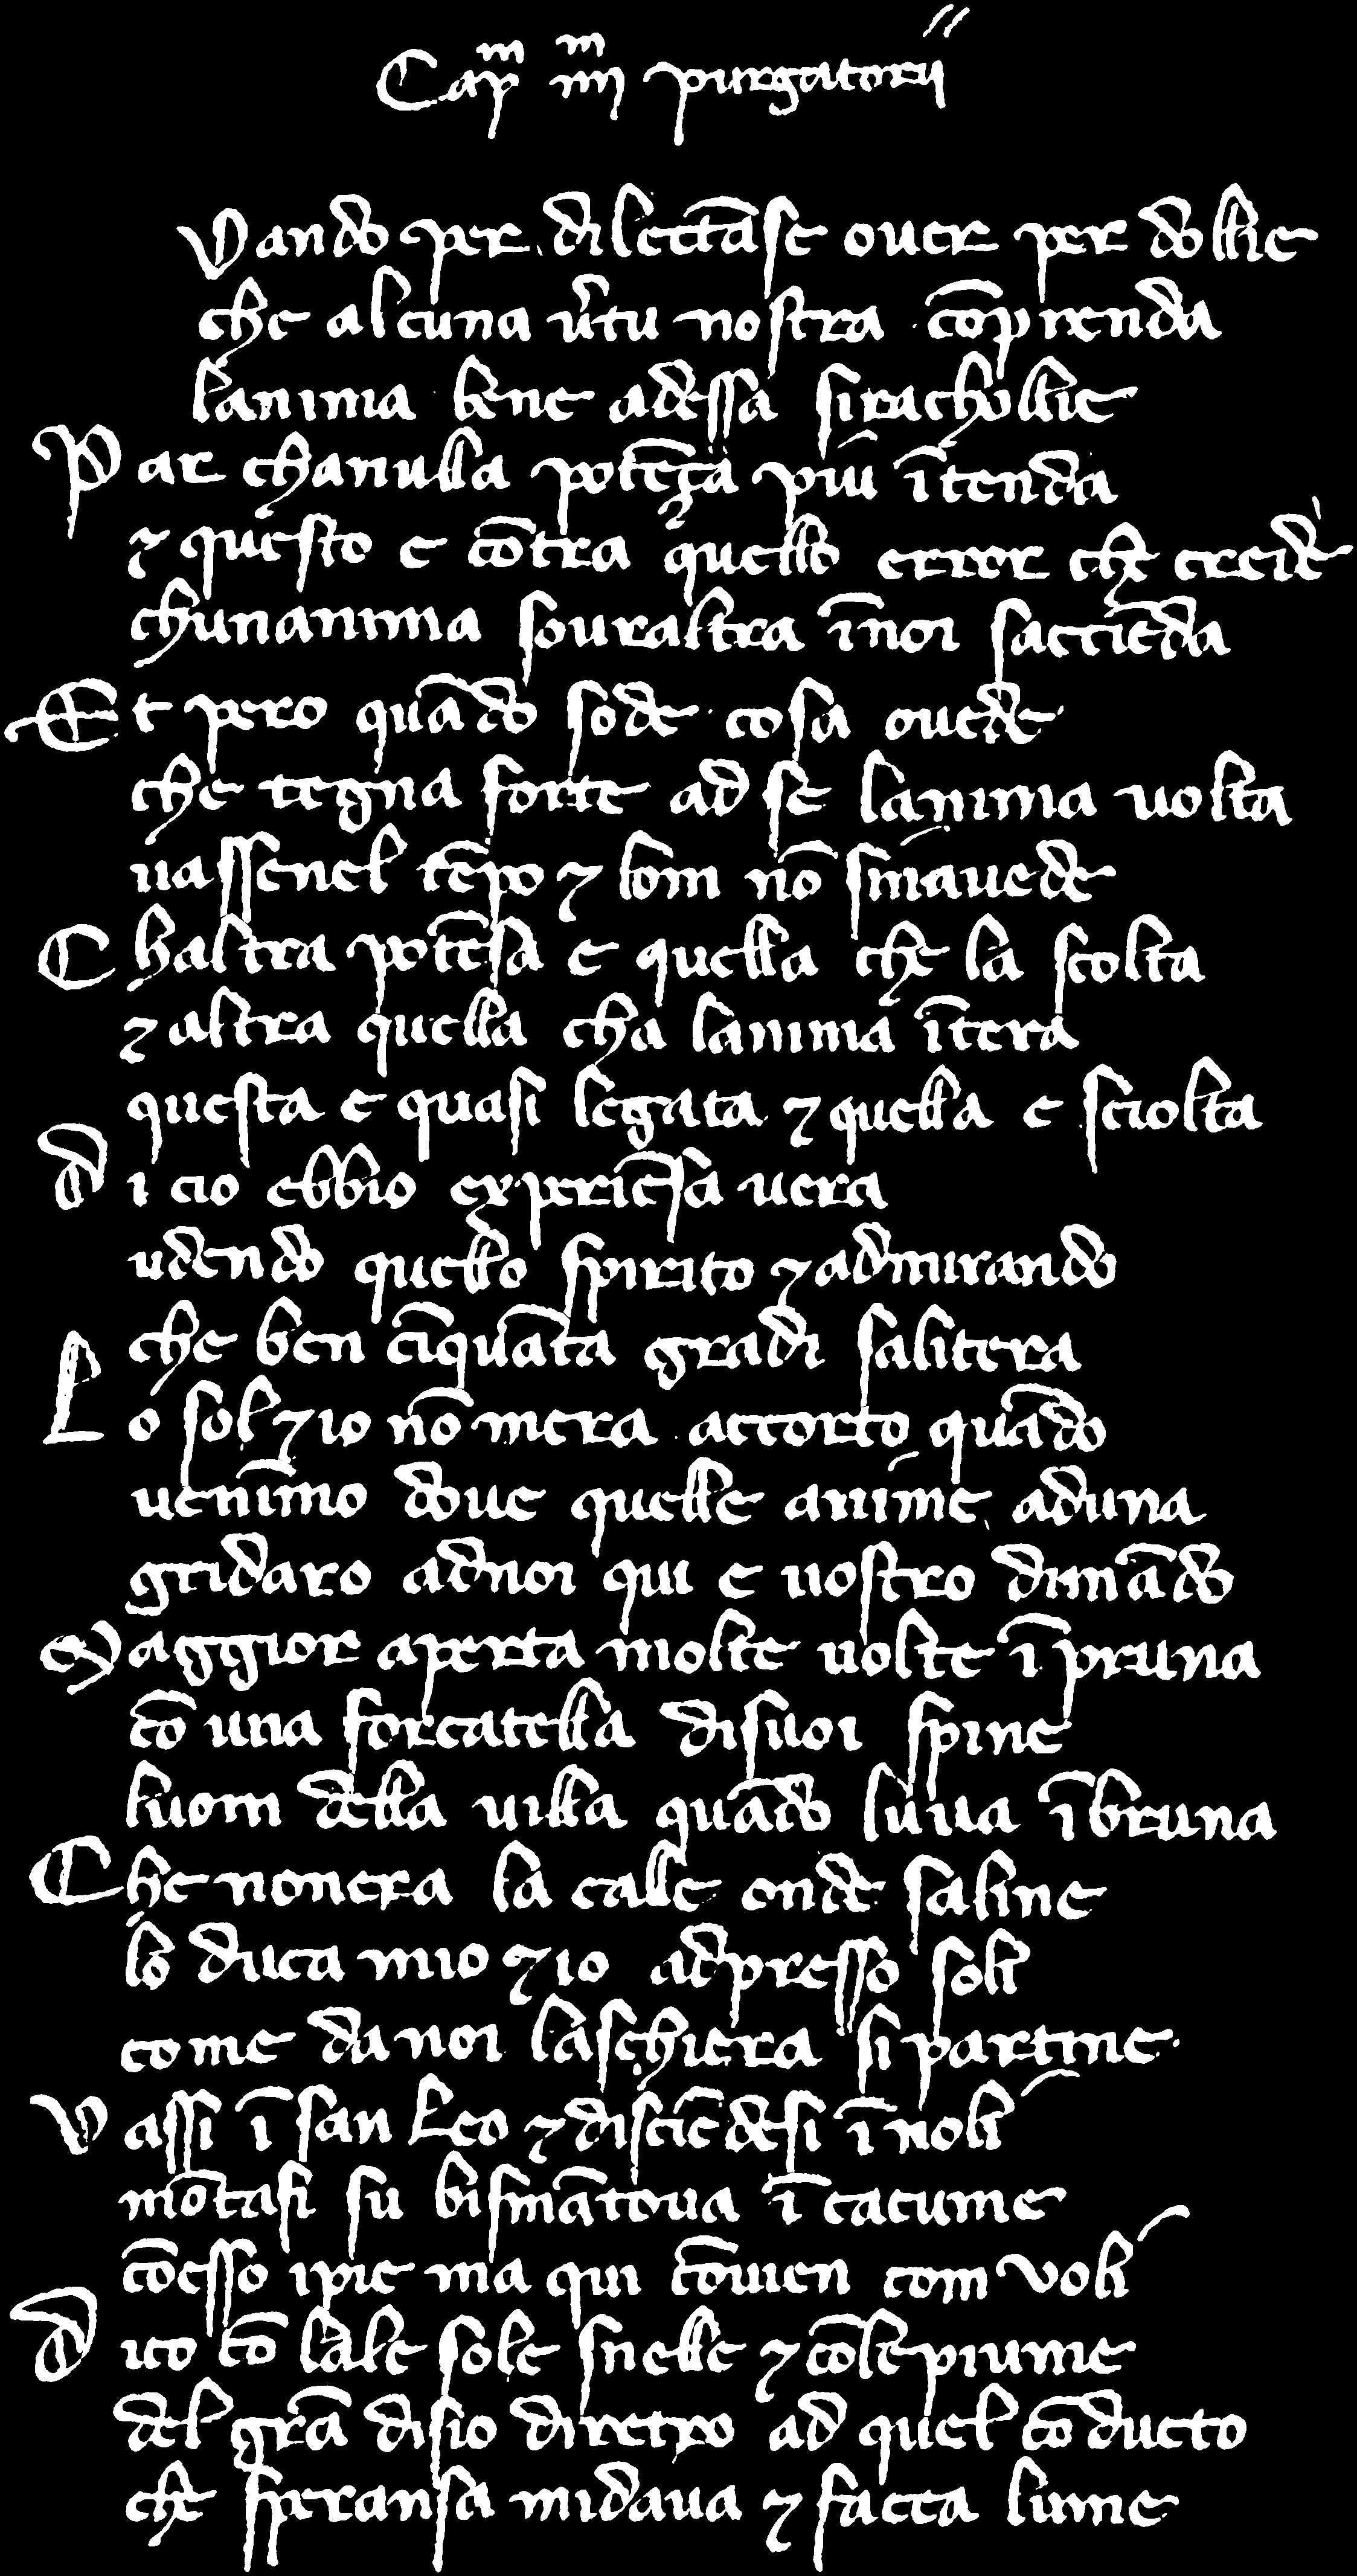 Cap̅m̅ iiij̅m̅ purgatorij
Vando per dilecta̅se ouer per dollie
che alcuna u̅tu nostra co̅prenda
lanima bene adessa sirachollie
Par chanulla pote̅ça piu i̅tenda
⁊ questo e co̅tra quello error che crede
chunanima souraltra i̅noi saccie̅da
Et pero qua̅do sode cosa ouede
che tegna forte ad se lanima uolta
uassenel te̅po ⁊ lom no̅ sinauede
Chaltra pote̅sa e quella che la scolta
⁊ altra quella cha lanima i̅tera
questa e quasi legata ⁊ quella e sciolta
di cio ebbio experie̅sa uera
udendo quello spirito ⁊ admirando
che ben ci̅qua̅ta gradi salitera
Lo sol ⁊ io no̅ mera accorto qua̅do
ueni̅mo doue quelle anime aduna
gridaro adnoi qui e uostro diman̅do
Maggior aperta molte uolte i̅pruna
co̅ una forcatella disuoi spine
luom della uilla qua̅do luua i̅bruna
Che nonera la calle onde saline
lo duca mio ⁊ io adpresso soli
come danoi laschiera si partine
Vassi i̅ san Leo ⁊ discie̅desi i̅ noli
mo̅tasi su bisma̅toua i̅ cacume
co̅esso ipie ma qui co̅uien com uoli
dico co̅ lale sole snelle ⁊ co̅le piume
del gra̅ disio diretro ad quel co̅ducto
che speransa midaua ⁊ facca lume